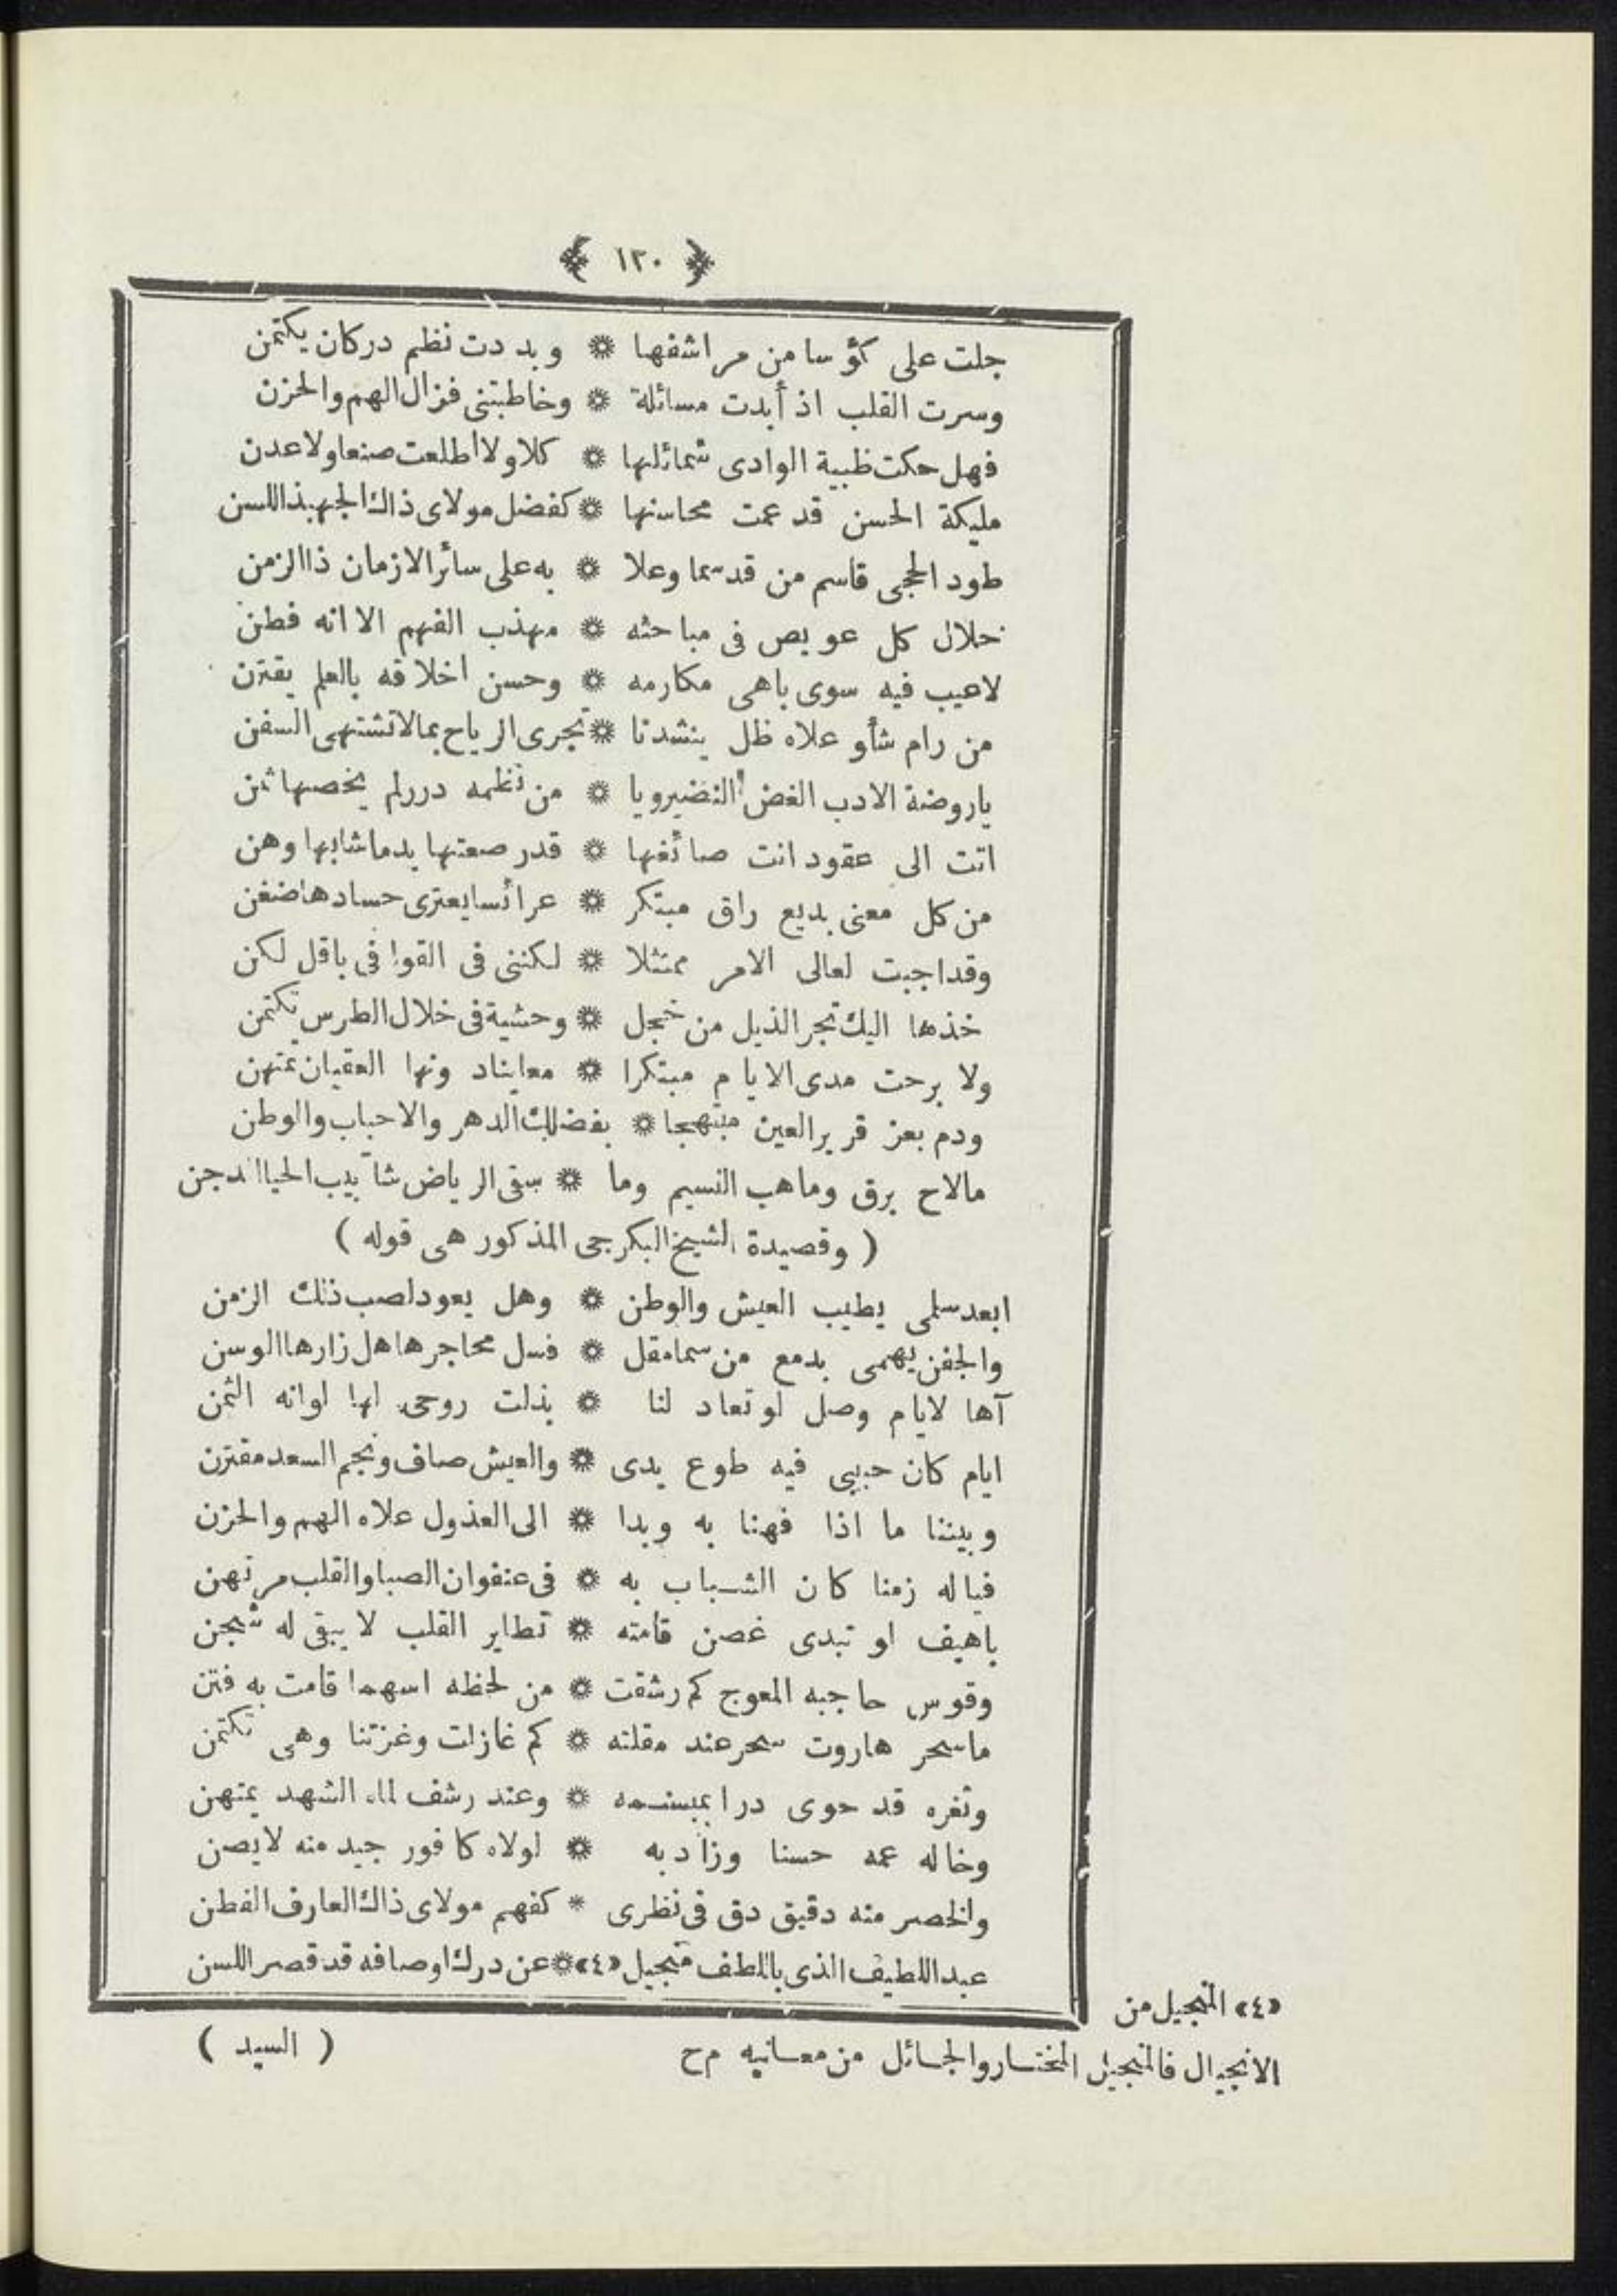 ١٢٠
جلت على كؤسا من مراشفها * وبددت نظم در كان يكتمن
وسرت القلب اذ أبدت مسائلة * وخاطبتنى فزال الهم والحزن
فهل حكت ظبية الوادى شمائلها * كلا ولا اطلعت صنعا ولا عدن
مليكة الحسن قد عمت محاسنها * كفضل مولاى ذاك الجهبذ اللسن
طود الحجى قاسم من قد سما وعلا * به على سائر الازمان ذا الزمن
حلال كل عويص فى مباحثه * مهذب الفهم الا انه فطن
لاعيب فيه سوى باهى مكارمه * وحسن اخلاقه بالعلم يقترن
من رام شأو علاه ظل ينشدنا * تجرى الرياح بمالاتشتهى السفن
ياروضة الادب الغض النضير ويا * من نظمه درر لم يخصها ثمن
اتت الى عقود انت صائغها * قدر صعتها يد ماشابها وهن
من كل معنى بديع راق مبتكر * عرائسا يعترى حسادها ضغن
وقد اجبت لعالى الامر ممتثلا * لكننى فى القوافى باقل لكن
خذها اليك تجر الذيل من خجل * وحشية فى خلال الطرس تكتمن
ولا برحت مدى الايام مبتكرا * معايناد ونها العقيان تمتهن
ودم بعز قرير العين مبتهجا * بفضلك الدهر والاحباب والوطن
مالاح برق وماهب النسيم وما * سقى الرياض شآبيب الحيا الدجن
( وقصيدة الشيخ البكرجى المذكور هى قوله )
ابعد سلمى يطيب العيش والوطن * وهل يعود لصب ذلك الزمن
والجفن يهمى بدمع من سما مقل * فسل محاجرها هل زارها الوسن
آها لايام وصل لو تعاد لنا * بذلت روحى لها لو انه الثمن
ايام كان حبيبى فيه طوع يدى * والعيش صاف ونجم السعد مقترن
وبيننا ما اذا فهنا به وبدا * الى العذول علاه الهم والحزن
فياله زمنا كان الشباب به * فى عنفوان الصبا والقلب مرتهن
باهيف لو تبدى غصن قامته * تطاير القلب لا يبقى له شجن
وقوس حاجبه المعوج كم رشقت * من لحظه اسهما قامت به فتن
ماسحر هاروت سحر عند مقلته * كم غازلت وغزتنا وهى تكتمن
وثغره قد حوى درا بمبسمه * وعند رشف لماه الشهد يمتهن
وخاله عمه حسنا وزاد به * لولاه كافور جيد منه لايصن
والخصر منه دقيق دق فى نظرى * كفهم مولاى ذاك العارف الفطن
عبد اللطيف الذى باللطف منجيل «٤» * عن درك اوصافه قد قصر اللسن
«٤» المنجيل من
الانجيال فالمنجيل المختار والجائل من معانيه م ح
( السيد )